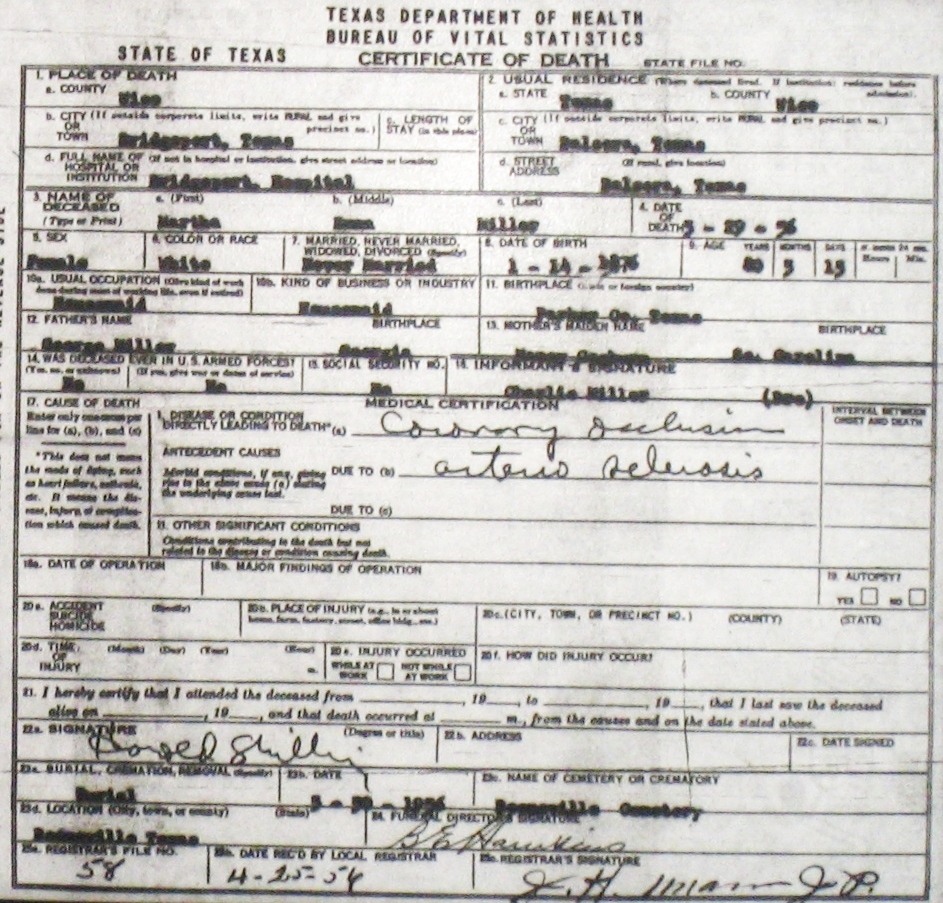 TEXAS DEPARTMENT OF HEALTH
BUREAU OF VITAL STATISTICS
STATE OF TEXAS CERTIFICATE OF DEATH STATE FILE NO.
1. PLACE OF DEATH 2. USUAL RESIDENCE (Where deceased lived. If institution: residence before admission).
a. COUNTY a. STATE b. COUNTY
Wise Texas Wise
b. CITY (If outside corporate limits, write RURAL and give precinct no.) c. LENGTH OF STAY (in this place) c. CITY (If outside corporate limits, write RURAL and give precinct no.)
OR TOWN OR TOWN
Bridgeport, Texas Balsora, Texas
d. FULL NAME OF HOSPITAL OR INSTITUTION (If not in hospital or institution, give street address or location) d. STREET ADDRESS (If rural, give location)
Bridgeport, Hospital Balsora, Texas
3. NAME OF DECEASED (Type or Print) a. (First) b. (Middle) c. (Last) 4. DATE OF DEATH
Martha Miller - 29 - 56
5. SEX 6. COLOR OR RACE 7. MARRIED, NEVER MARRIED, WIDOWED, DIVORCED (Specify) 8. DATE OF BIRTH 9. AGE YEARS MONTHS DAYS IF UNDER 24 HRS. Hours Min.
Female White Never Married 1 - 14 - 1876 80 15
10a. USUAL OCCUPATION (Give kind of work done during most of working life, even if retired) 10b. KIND OF BUSINESS OR INDUSTRY 11. BIRTHPLACE (State or foreign country)
Housemaid Housemaid Parker Co. Texas
12. FATHER'S NAME BIRTHPLACE 13. MOTHER'S MAIDEN NAME BIRTHPLACE
George Miller Georgia So. Carolina
14. WAS DECEASED EVER IN U.S. ARMED FORCES? 15. SOCIAL SECURITY NO. 16. INFORMANT'S SIGNATURE
(Yes, no, or unknown) (If yes, give war or dates of service)
No No No Charlie Miller (Bro)
17. CAUSE OF DEATH MEDICAL CERTIFICATION INTERVAL BETWEEN ONSET AND DEATH
Enter only one cause per line for (a), (b), and (c)
I. DISEASE OR CONDITION DIRECTLY LEADING TO DEATH* (a) Coronary occlusion
*This does not mean the mode of dying, such as heart failure, asthenia, etc. It means the disease, injury, or complication which caused death.
ANTECEDENT CAUSES
Morbid conditions, if any, giving rise to the above cause (a) stating the underlying cause last.
DUE TO (b) arterio sclerosis
DUE TO (c)
II. OTHER SIGNIFICANT CONDITIONS
Conditions contributing to the death but not related to the disease or condition causing death.
18a. DATE OF OPERATION 18b. MAJOR FINDINGS OF OPERATION 19. AUTOPSY?
YES NO
20a. ACCIDENT SUICIDE HOMICIDE (Specify) 20b. PLACE OF INJURY (e.g., in or about home, farm, factory, street, office bldg., etc.) 20c. (CITY, TOWN, OR PRECINCT NO.) (COUNTY) (STATE)
20d. TIME OF INJURY (Month) (Day) (Year) (Hour) m. 20e. INJURY OCCURRED WHILE AT WORK NOT WHILE AT WORK 20f. HOW DID INJURY OCCUR?
21. I hereby certify that I attended the deceased from , 19 , to , 19 , that I last saw the deceased
alive on , 19 , and that death occurred at m., from the causes and on the date stated above.
22a. SIGNATURE (Degree or title) 22b. ADDRESS 22c. DATE SIGNED
23a. BURIAL, CREMATION, REMOVAL (Specify) 23b. DATE 23c. NAME OF CEMETERY OR CREMATORY
Burial - 30 - 1956 Boonsville Cemetery
23d. LOCATION (City, town, or county) (State) 24. FUNERAL DIRECTOR'S SIGNATURE
Boonsville Texas B E Hawkins
25a. REGISTRAR'S FILE NO. 25b. DATE REC'D BY LOCAL REGISTRAR 25c. REGISTRAR'S SIGNATURE
58 4-25-56 J. H. Mann J.P.